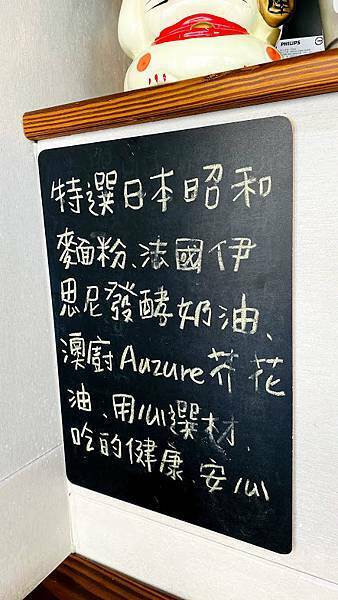 PHILIPS
特選日本昭和
麵粉、法國伊
思尼發酵奶油、
澳廚Auzure芥花
油、用心選材、
吃的健康、安心